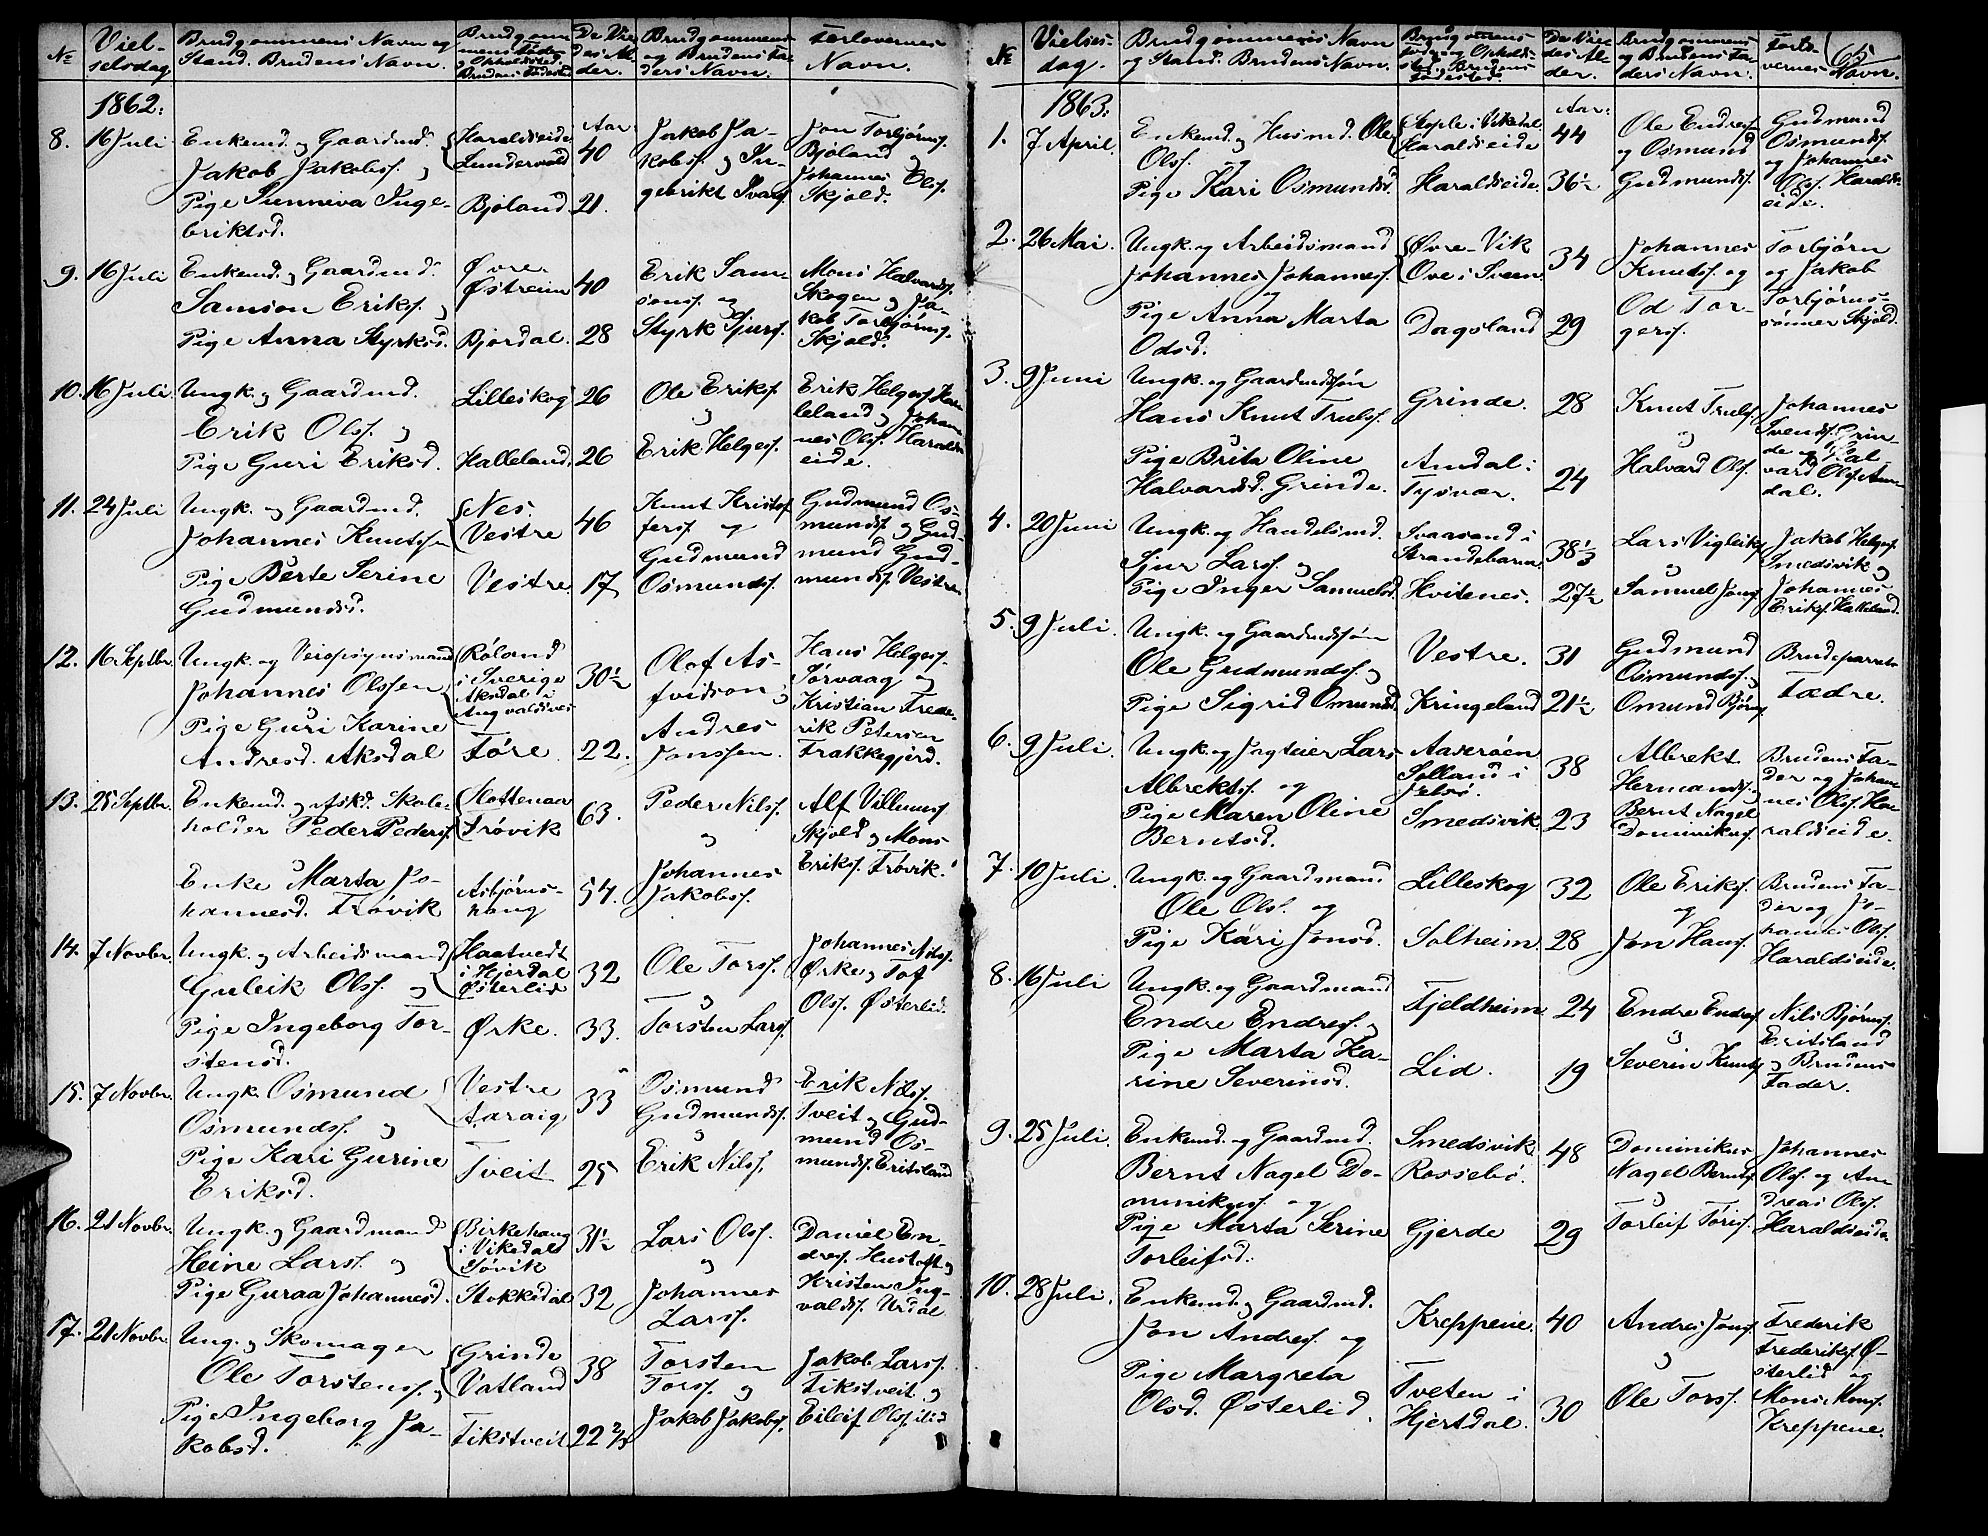 №
Viel-
selsdag
Brudgommens Navn og
Stand. Brudens Navn.
Brudgom
mens Føde-
og Opholdsted.
Brudens Fødested
De Vie
des Al-
der.
Brudgommens
og Brudens Fa-
ders Navn.
Forlovernes
Navn.
1862.
8. 16 Juli
Enkemd. og Gaardmd.
Jakob Jakobsf. og
Pige Sunniva Inge-
briktsd.
Haraldseide
Lundervold
Bjoland
Aar.
40
21.
Jakob Ja-
kobsf. og In-
gebrikt Ivarsf.
Jon Torbjørnsf.
Bjoland og
Johannes Olsf.
Skjold.
9. 16 Juli
Enkemd. og Gaardmd.
Samson Eriksf. og
Pige Anna Styrksd.
Øvre-
Østreim
Bjordal.
40
28
Erik Sam-
sonsf. og
Styrk Sjursf.
Mons Halvardsf.
Skogen og Ja-
kob Torbjørnsf.
Skjold.
10. 16 Juli
Ungk. og Gaardmd.
Erik Olsf. og
Pige Guri Eriksd.
Lilleskog
Halleland.
26
26
Ole Eriksf.
og
Erik Helgesf.
Erik Helgesf. Hal-
leland og Johan
nes Olsf. Haralds
eide.
11. 24 Juli
Ungk. og Gaardmd.
Johannes Knutsf. og
Pige Berte Serine
Gudmundsd.
Nes.
Vestre
Vestre
46
17
Knut Kristof
fersf. og
Gudmund
Osmundsf.
Gudmund Os-
mundsf. og Gud-
mund Gud-
mundsf. Vestre
12. 16 Septbr.
Ungk. og Veiopsynsmand
Johannes Olssen
og
Pige Guri Karine
Andresd. Aksdal
Røland
i Sverige
Aksdal i
Augvaldsnes
Føre.
30½
22.
Olof As-
fvidson og
Andres
Jonssen.
Hans Helgesf.
Førvaag og
Kristian Frede-
rik Petersen
Frakkegjerd.
13. 25 Septbr.
Enkemd. og Afskd. Skole-
holder Peder Pedersf.
og
Enke Marta Jo-
hannesd. Frøvik
Slottenaa
Frøvik
Asbjørns-
haug
63.
54.
Peder Nilsf.
og
Johannes
Jakobsf.
Alf Villumsf.
Skjold og Mons
Eriksf. Frøvik.
14. 7 Novbr.
Ungk. og Arbeidsmand
Guleik Olsf. og
Pige Ingeborg Tor-
stensd.
Haatvedt
i Hjerdal
Østerlid
Ørke.
32
33.
Ole Torsf.
og
Torsten Larsf.
Johannes Nilsf.
Ørke og Tof
Olsf. Østerlid.
15. 7 Novbr.
Ungk. Osmund
Osmundsf. og
Pige Kari Gurine
Eriksd.
Vestre
Aaraig
Tveit
33
25
Osmund
Gudmundsf.
og
Erik Nilsf.
Erik Nilsf.
Tveit og Gud-
mund Os-
mundsf. Eritsland
16. 21 Novbr.
Ungk. og Gaardmand
Heine Larsf. og
Pige Guraa Johannesd.
Birkehaug
i Vikedal
Søvik
Stokkedal
31½
32
Lars Olsf.
og
Johannes
Larsf.
Daniel En-
dresf. Hustoft og
Kristen Ing-
valdsf. Urdal
17. 21 Novbr.
Ung. og Skomager
Ole Torstensf. og
Pige Ingeborg Ja-
kobsd.
Grinde
Vatland
Fikstveit
38
22⅔
Torsten
Torsf. og
Jakob Jakobsf.
Jakob Larsf.
Fikstveit og
Eileif Olsf. Lid
№
Vielses-
dag.
Brudgommens Navn
og Stand. Brudens Navn.
Brudgommens
Føde- og Opholds-
sted. Brudens
Fødested.
De Vie
des Al-
der.
Brudgommens
og Brudens Fa-
ders Navn.
Forlo-
vernes
Navn.
65
1863.
1. 7 April.
Enkemd. og Husmd. Ole
Olsf. og
Pige Kari Osmundsd.
Stople i Vikedal
Haraldseide
Haraldseide.
Aar.
44
36½
Ole Endresf.
og Osmund
Gudmundsf.
Gudmund
Osmundsf.
og Johannes
Olsf. Haralds-
eide.
2. 26 Mai.
Ungk. og Arbeidsmand
Johannes Johannesf.
og
Pige Anna Marta
Odsd.
Øvre-Vik
Ove i Sveen
Dagsland
34
29
Johannes
Knutsf. og
Od Tor-
gersf.
Torbjørn
og Jakob
Torbjørns-
sønner Skjold.
3. 9 Juni
Ungk. og Gaardmdssøn
Hans Knut Trulsf.
og
Pige Brita Oline
Halvardsd. Grinde.
Grinde.
Amdal i
Tysvær.
28
24
Knut Trulsf.
og
Halvard Olsf.
Johannes
Svendsf. Grin-
de og Hal-
vard Olsf. Am-
dal.
4. 20 Juni
Ungk. og Handelsmd.
Sjur Larsf. og
Pige Inger Samuelsd.
Svaasand i
Strandebarm
Hvitenes.
38⅓
27½
Lars Vigleiksf.
og
Samuel Jonsf.
Jakob Helgesf.
Smedsvik og
Johannes
Eriksf. Halleland.
5. 9 Juli.
Ungk. og Gaardmdssøn
Ole Gudmundsf. og
Pige Sigrid Omundsd.
Vestre.
Kringeland
31
21½
Gudmund
Osmundsf. og
Omund Bjørnsf.
Brudeparrets
Fædre.
6. 9 Juli.
Ungk. og Jagteier Lars
Albrektsf. og
Pige Maren Oline
Berntsd.
Aaserøen
Solland i
Jelsø.
Smedsvik
38
23
Albrekt
Hermandsf. og
Bernt Nagel
Dominikusf.
Brudens Fa-
der og Johan
nes Olsf. Ha-
raldseide.
7. 10 Juli.
Ungk. og Gaardmand
Ole Olsf. og
Pige Kari Jonsd.
Lilleskog
Solheim
32
28
Ole Eriksf.
og
Jon Hansf.
Brudens Fa-
der og Jo-
hannes Olsf.
Haraldseide.
8. 16 Juli
Ungk. og Gaardmand
Endre Endresf. og
Pige Marta Ka-
rine Severinsd.
Fjeldheim
Lid.
24
19
Endre Endresf.
og
Severin Knutsf.
Nils Bjørnsf.
Eritsland
og Brudens
Fader.
9. 25 Juli.
Enkemd. og Gaardmd.
Bernt Nagel Do-
minikusf. og
Pige Marta Serine
Torleifsd.
Smedsvik
Rossebø.
Gjerde
48
29
Dominikus
Nagel Berntsf.
og
Torleif Toresf.
Johannes
Olsf. og An-
dreas Olsf.
Haraldseide.
10. 28 Juli.
Enkemd. og Gaardmd.
Jon Andresf. og
Pige Margreta
Olsd. Østerlid.
Kreppene.
Tveten i
Hjertdal.
40
30
Andres Jonsf.
og
Ole Torsf.
Frederik
Frederiksf. Ø-
sterlid og
Mons Monsf.
Kreppene.